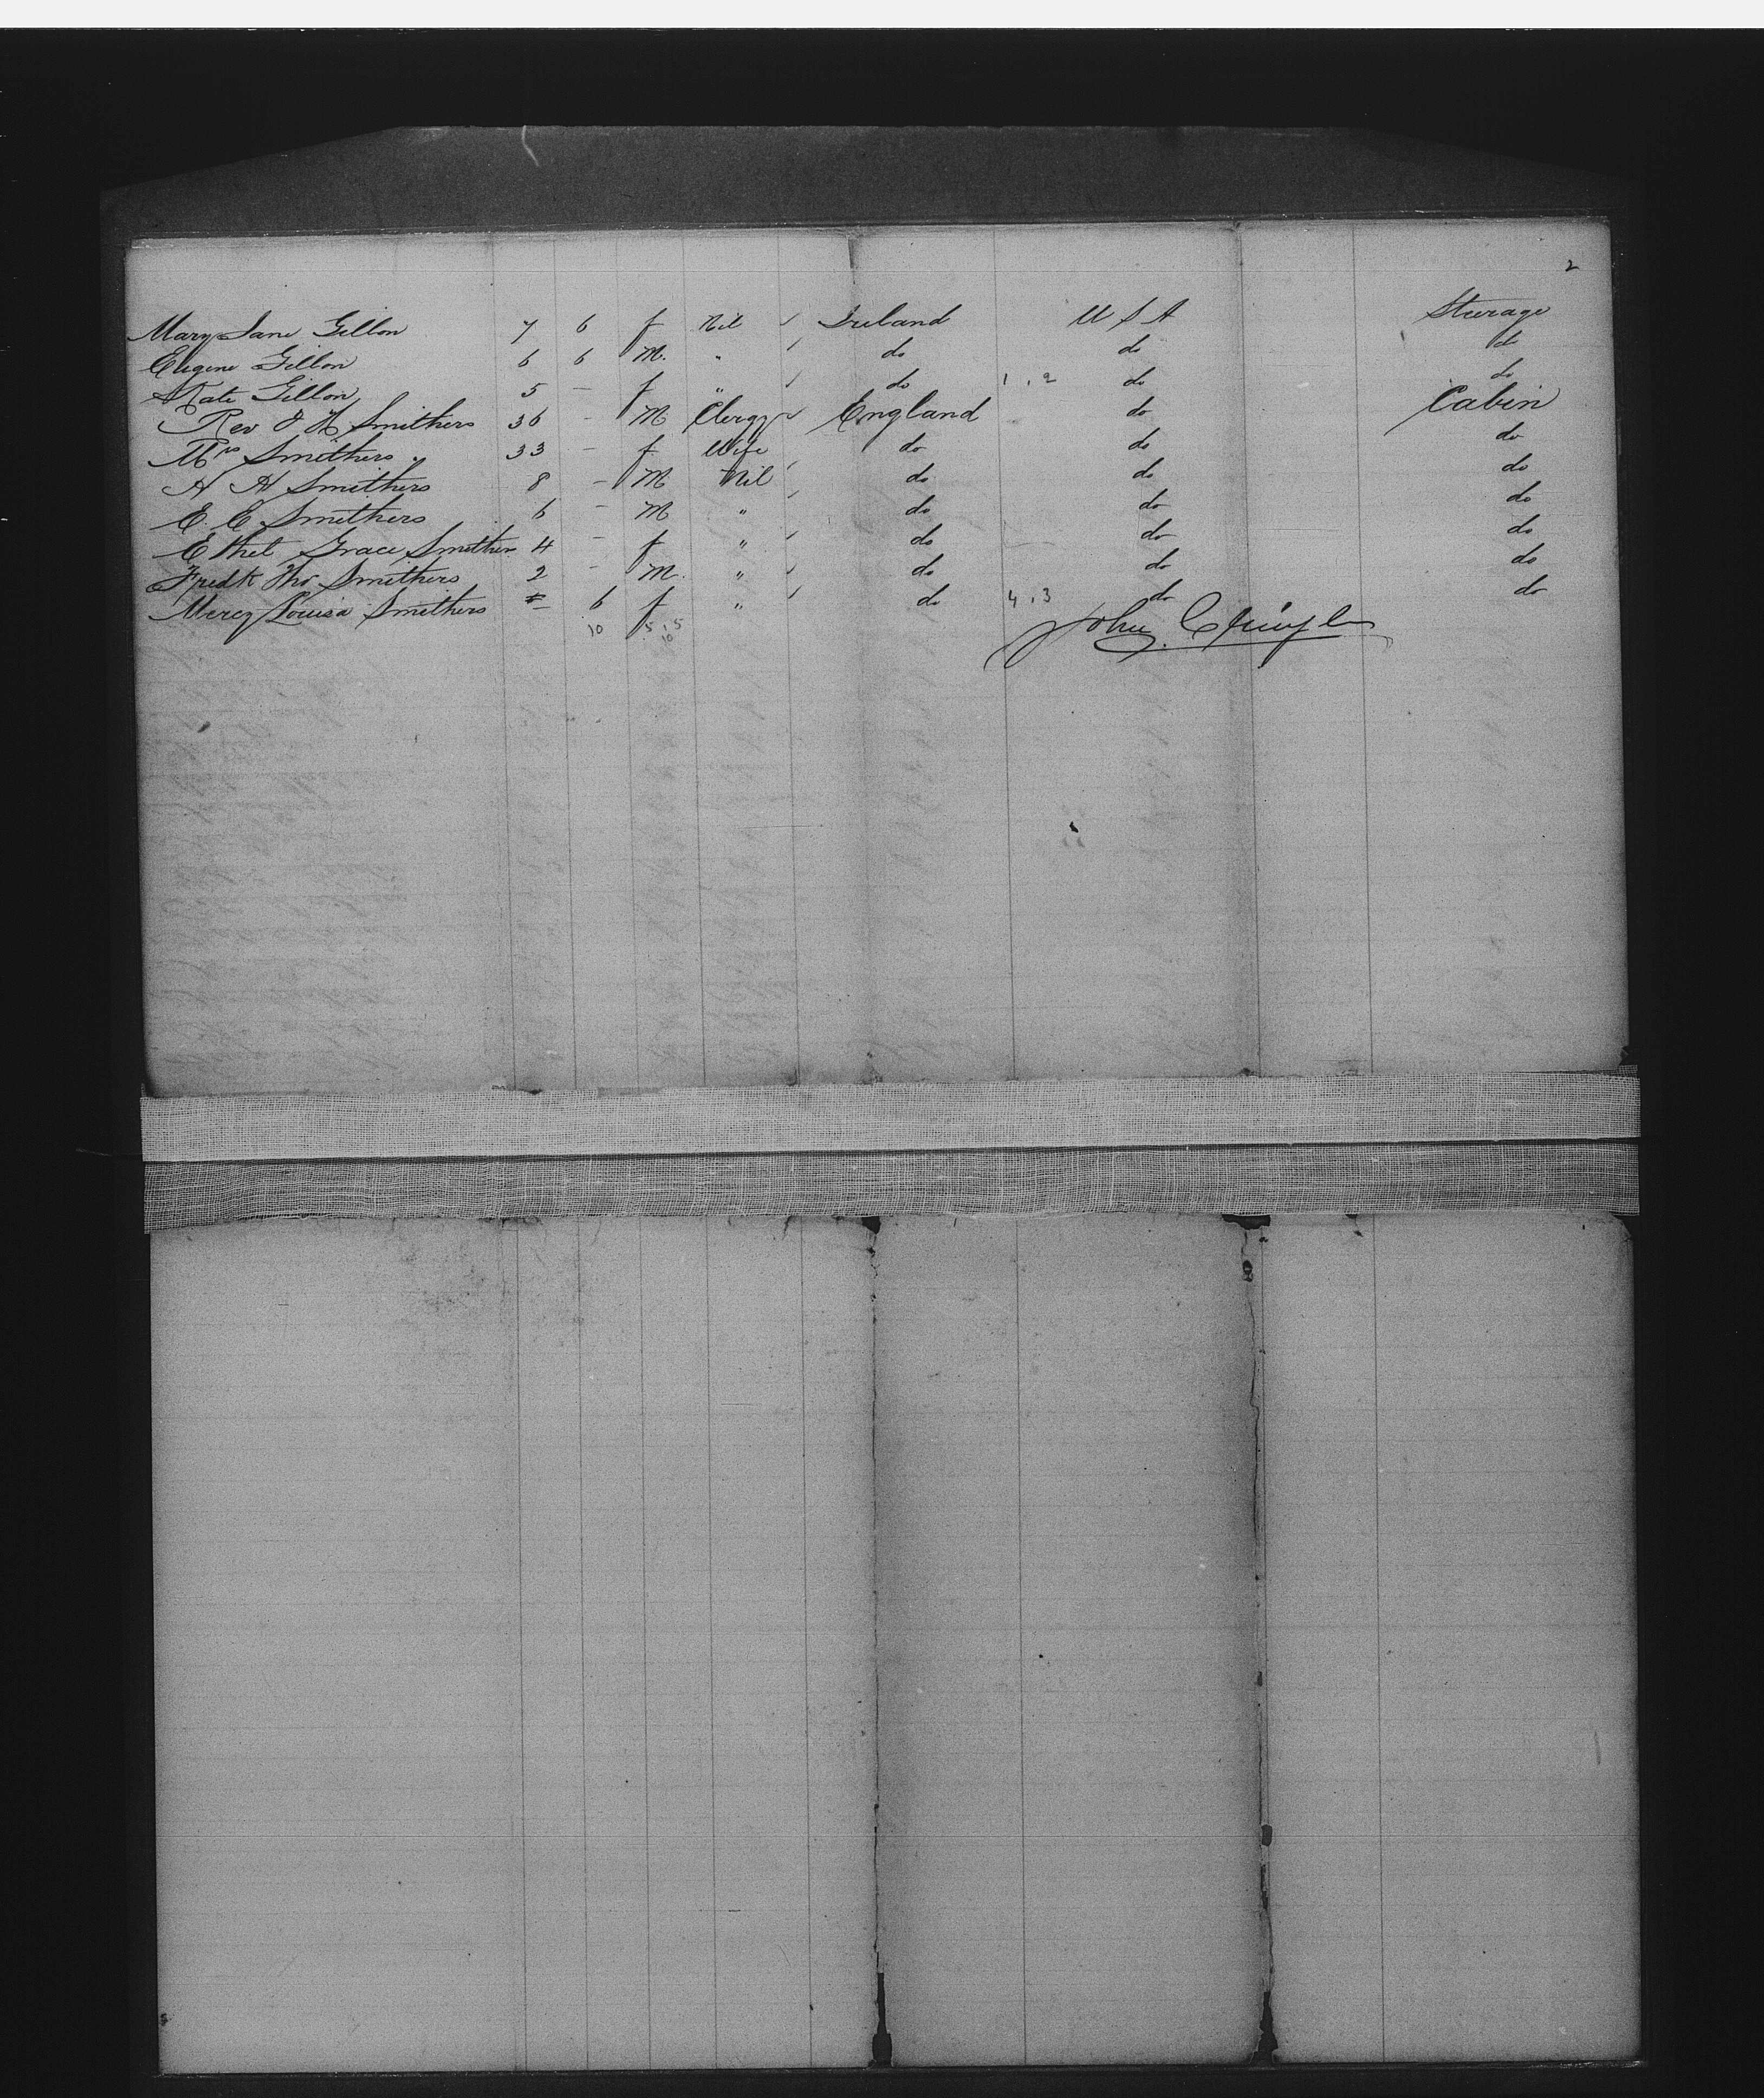 2
Mary Jane Gillon 7 6 f Nil ✓ Ireland U S A Steerage
Eugene Gillon 6 6 M. " ✓ do do do
Kate Gillon 5 — f " ✓ do 1 . 2 do do
Rev J H Smithers 36 - M Clergy ✓ England do Cabin
Mrs Smithers . 33 — f Wife do do do
H H Smithers 8 — M Nil ✓ do do do
E. E Smithers 6 - M " ✓ do do do
Ethel Grace Smithers 4 - f " ✓ do do do
Fredk Tho Smithers 2 - M. " ✓ do do do
Mercy Louisa Smithers 6 f " ✓ do 4 . 3 do do
10 5 . 5
10
John